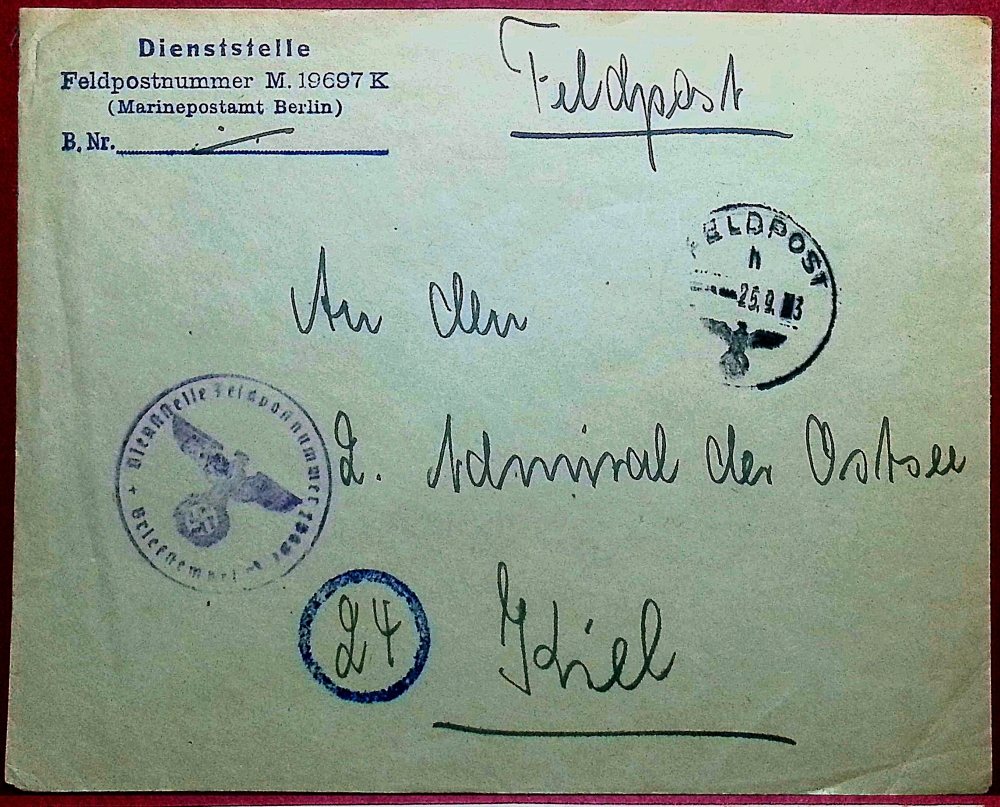 Dienststelle
Feldpostnummer M. 19697 K
(Marinepostamt Berlin)
B. Nr.
Feldpost
FELDPOST
h
25.9. 3
An den
2. Admiral der Ostsee
Dienststelle Feldpostnummer
Briefstempel
24 Kiel